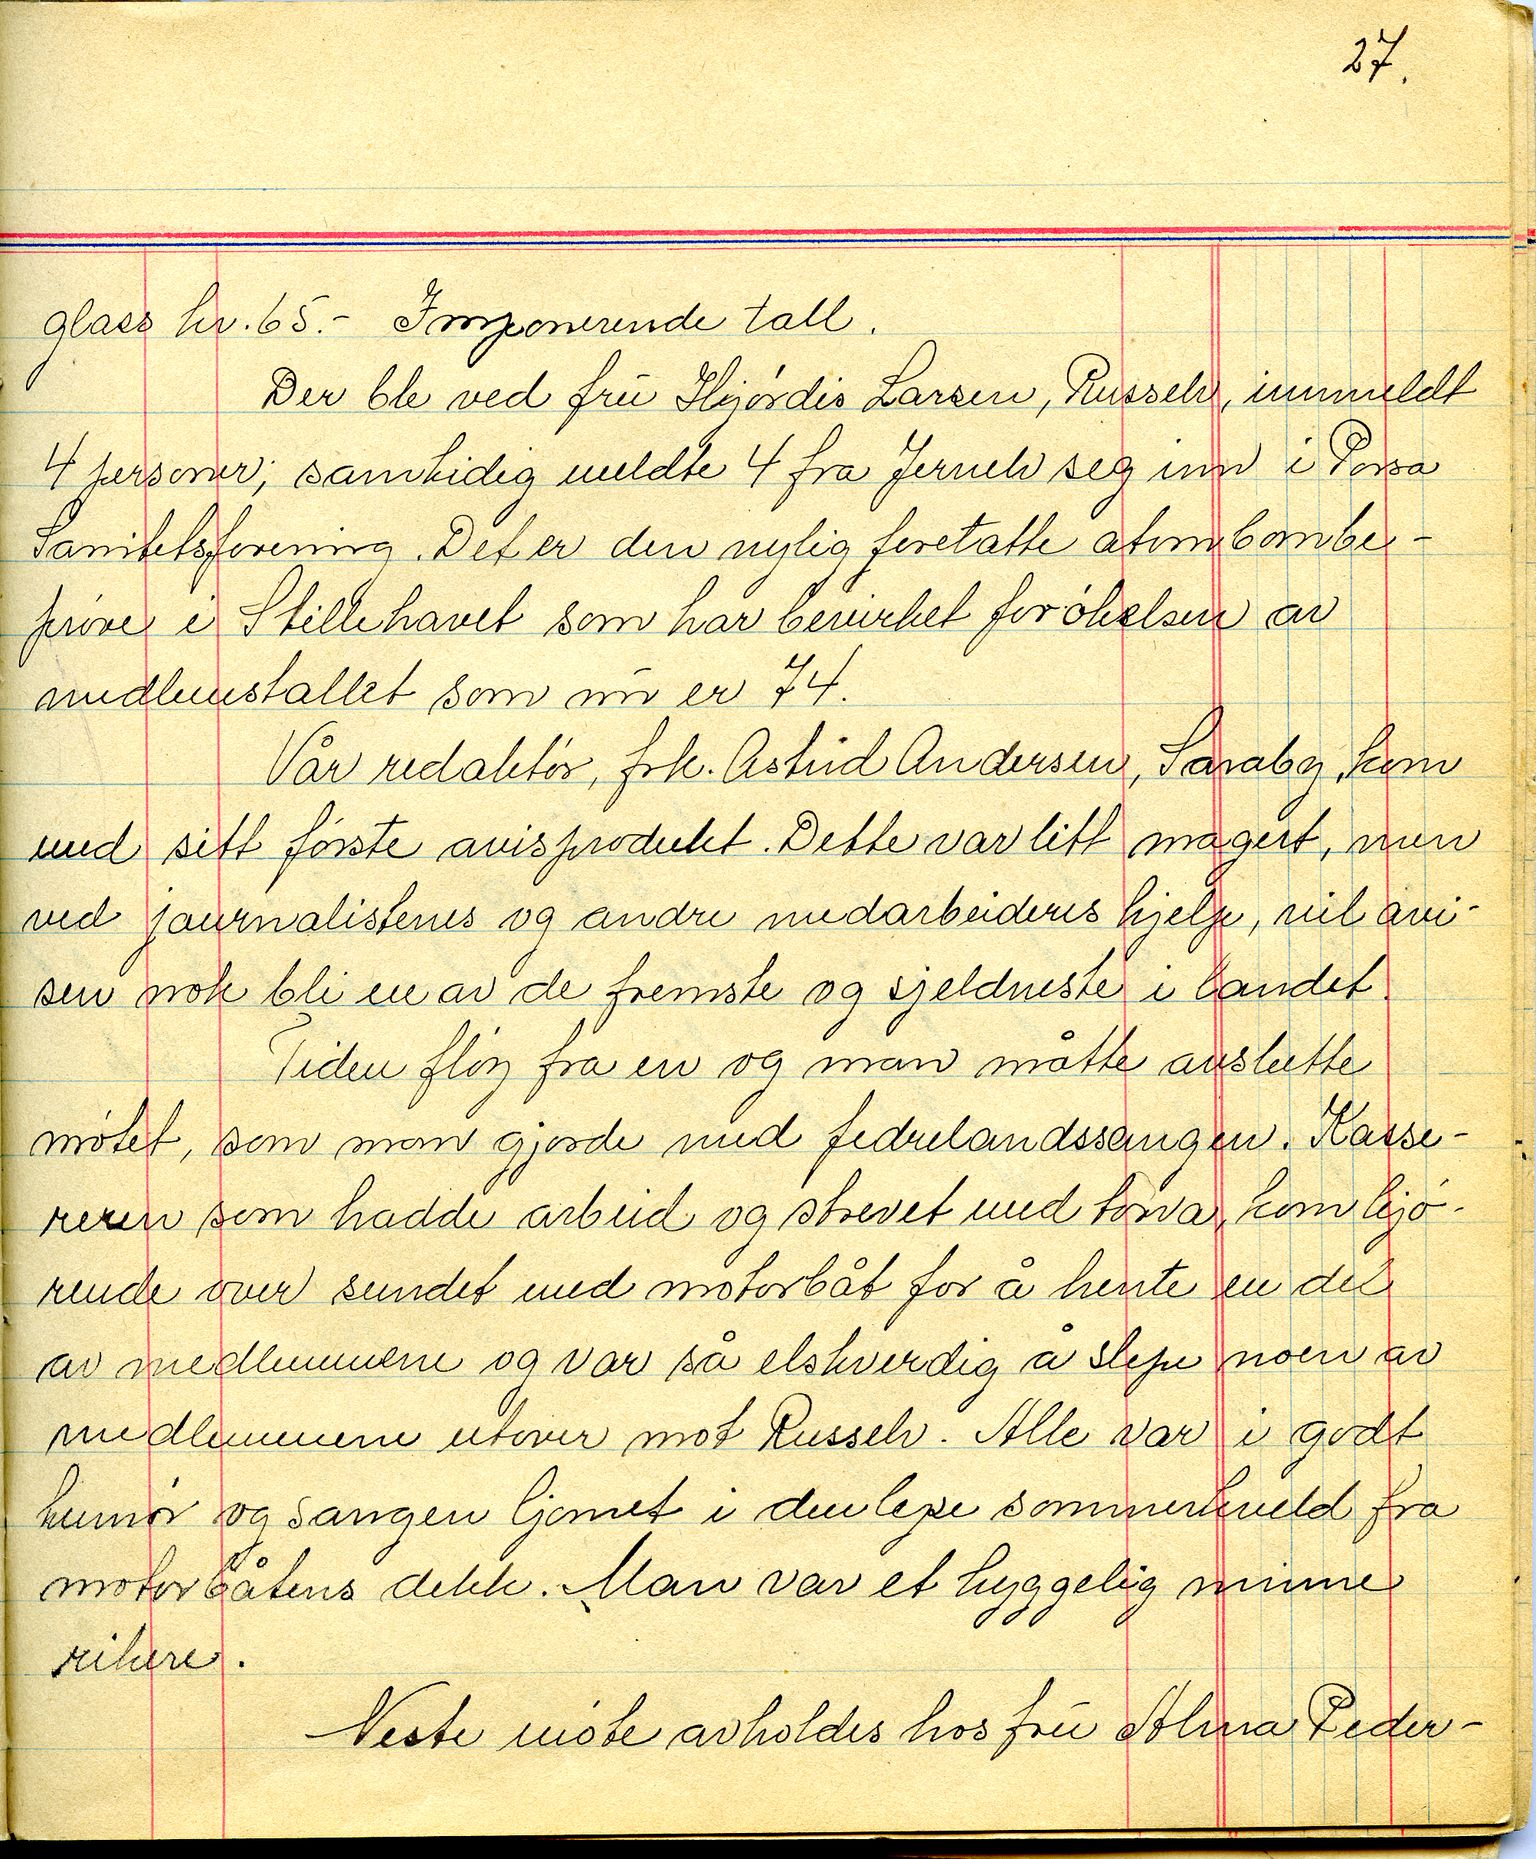 27.
glass kr. 65.- Imponerende tall.
Der ble ved fru Hjørdis Larsen, Russelv, innmeldt
4 personer; samtidig meldte 4 fra Jernelv seg inn i Porsa
Sanitetsforening. Det er den nylig foretatte atombombe-
prøve i Stillehavet som har bevirket forøkelsen av
medlemstallet som nu er 74.
Vår redaktør, frk. Astrid Andersen, Saraby, kom
med sitt første avisprodukt. Dette var litt magert, men
ved journalistenes og andre medarbeideres hjelp, vil avi-
sen nok bli en av de fremste og sjeldneste i landet.
Tiden fløy fra en og man måtte avslutte
møtet, som man gjorde med fedrelandssangen. Kasse-
reren som hadde arbeid og strevet med torva, kom kjø-
rende over sundet med motorbåt for å hente en del
av medlemmene og var så elskverdig å slepe noen av
medlemmene utover mot Russelv. Alle var i godt
humør og sangen ljomet i den lyse sommerkveld fra
motorbåtens dekk. Man var et hyggelig minne
rikere.
Neste møte avholdes hos fru Alma Peder-